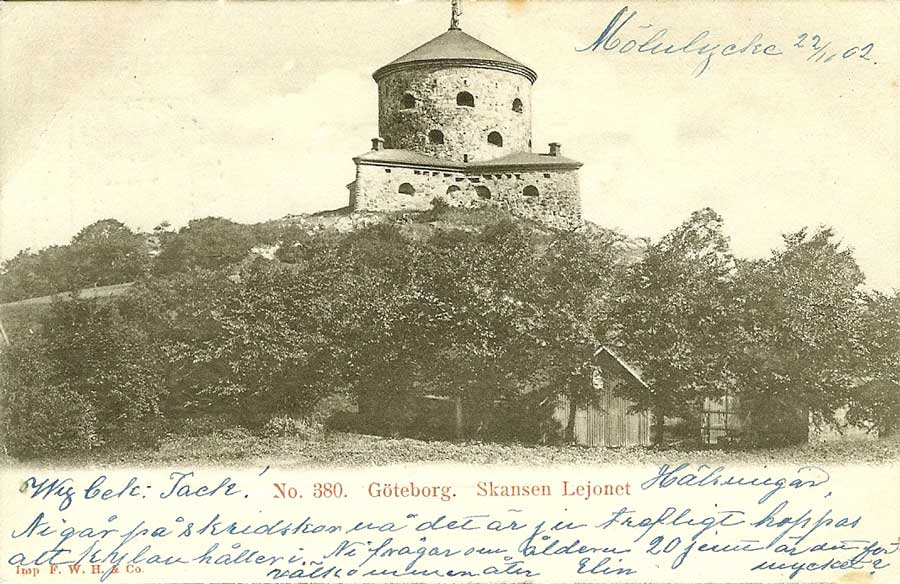 Mölnlycke 22/11 02.
Tack! No. 380. Göteborg. Skansen Lejonet Hälsningar,
Ni går på skridskor nå det är ju trefligt hoppas
att kylan håller i. Ni frågar om åldern 20 är för
Imp F. W. H. & Co. välkommen åter Elin mycket?